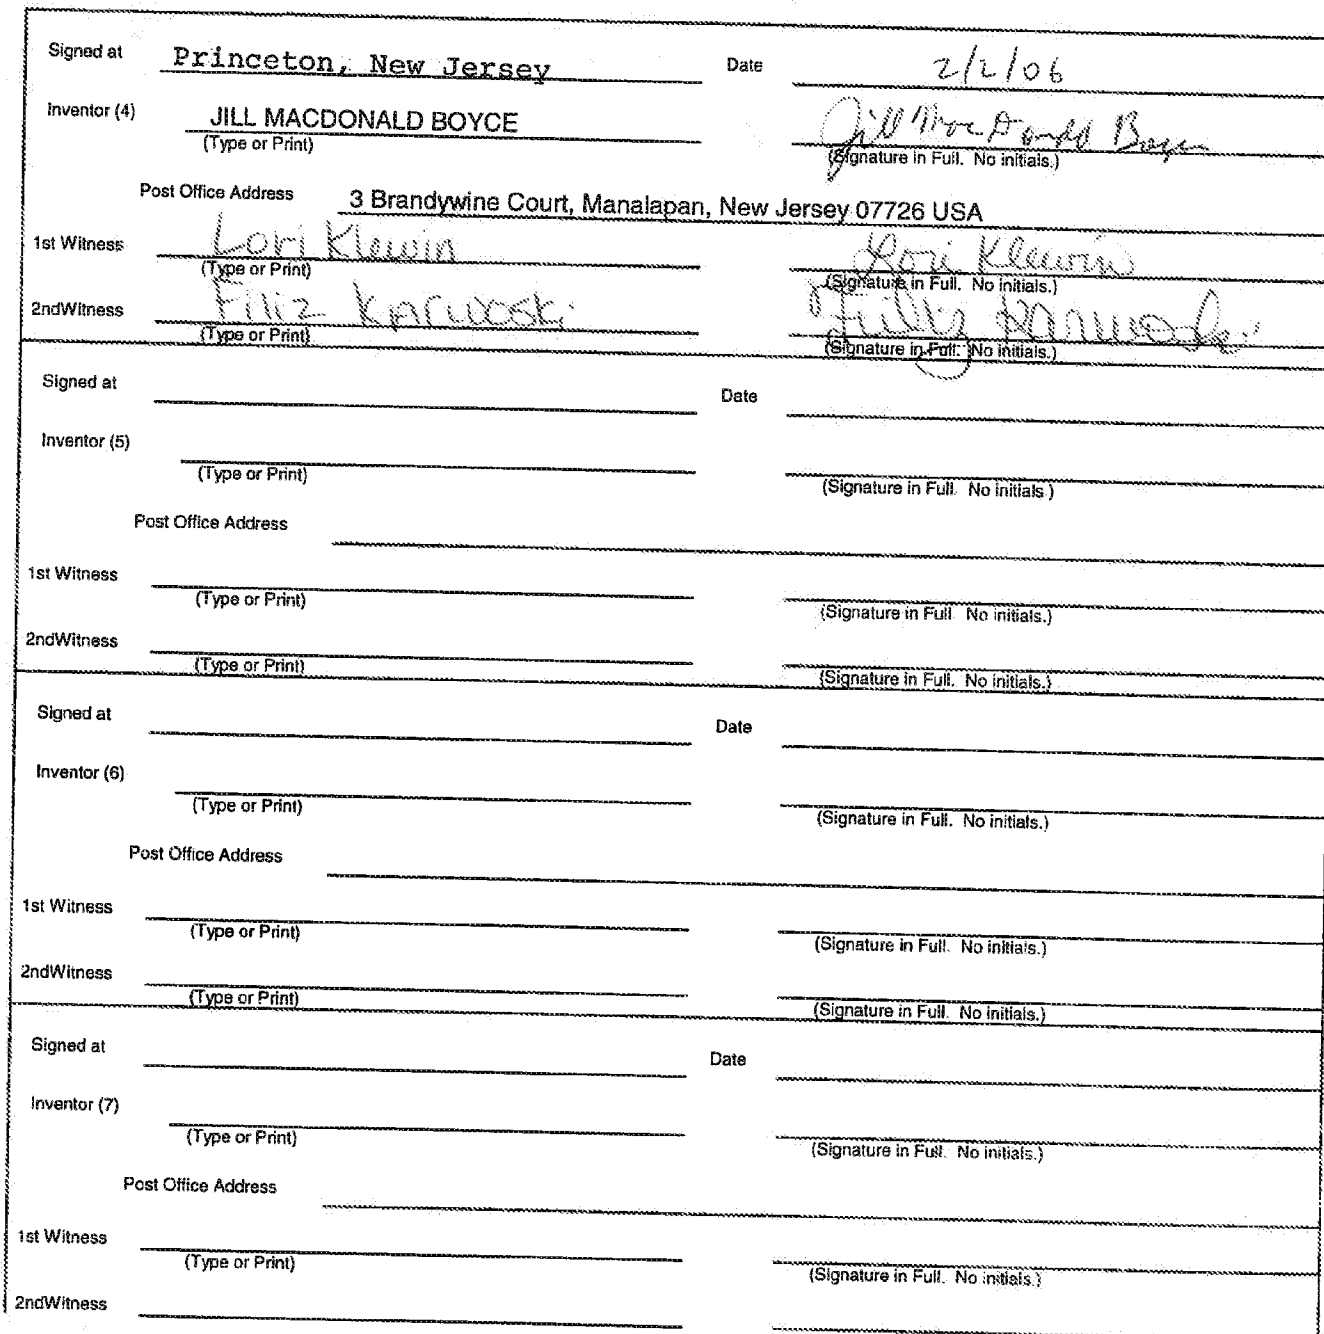 Signed at Princeton, New Jersey Date 2/2/06
Inventor (4) JILL MACDONALD BOYCE Jill MacDonald Boyce
(Type or Print) (Signature in Full. No initials.)
Post Office Address 3 Brandywine Court, Manalapan, New Jersey 07726 USA
1st Witness Lori Klewin Lori Klewin
(Type or Print) (Signature in Full. No initials.)
2ndWitness Filiz Karwoski Filiz Karwoski
(Type or Print) (Signature in Full. No initials.)
Signed at Date
Inventor (5)
(Type or Print) (Signature in Full. No initials.)
Post Office Address
1st Witness
(Type or Print) (Signature in Full. No initials.)
2ndWitness
(Type or Print) (Signature in Full. No initials.)
Signed at Date
Inventor (6)
(Type or Print) (Signature in Full. No initials.)
Post Office Address
1st Witness
(Type or Print) (Signature in Full. No initials.)
2ndWitness
(Type or Print) (Signature in Full. No initials.)
Signed at Date
Inventor (7)
(Type or Print) (Signature in Full. No initials.)
Post Office Address
1st Witness
(Type or Print) (Signature in Full. No initials.)
2ndWitness